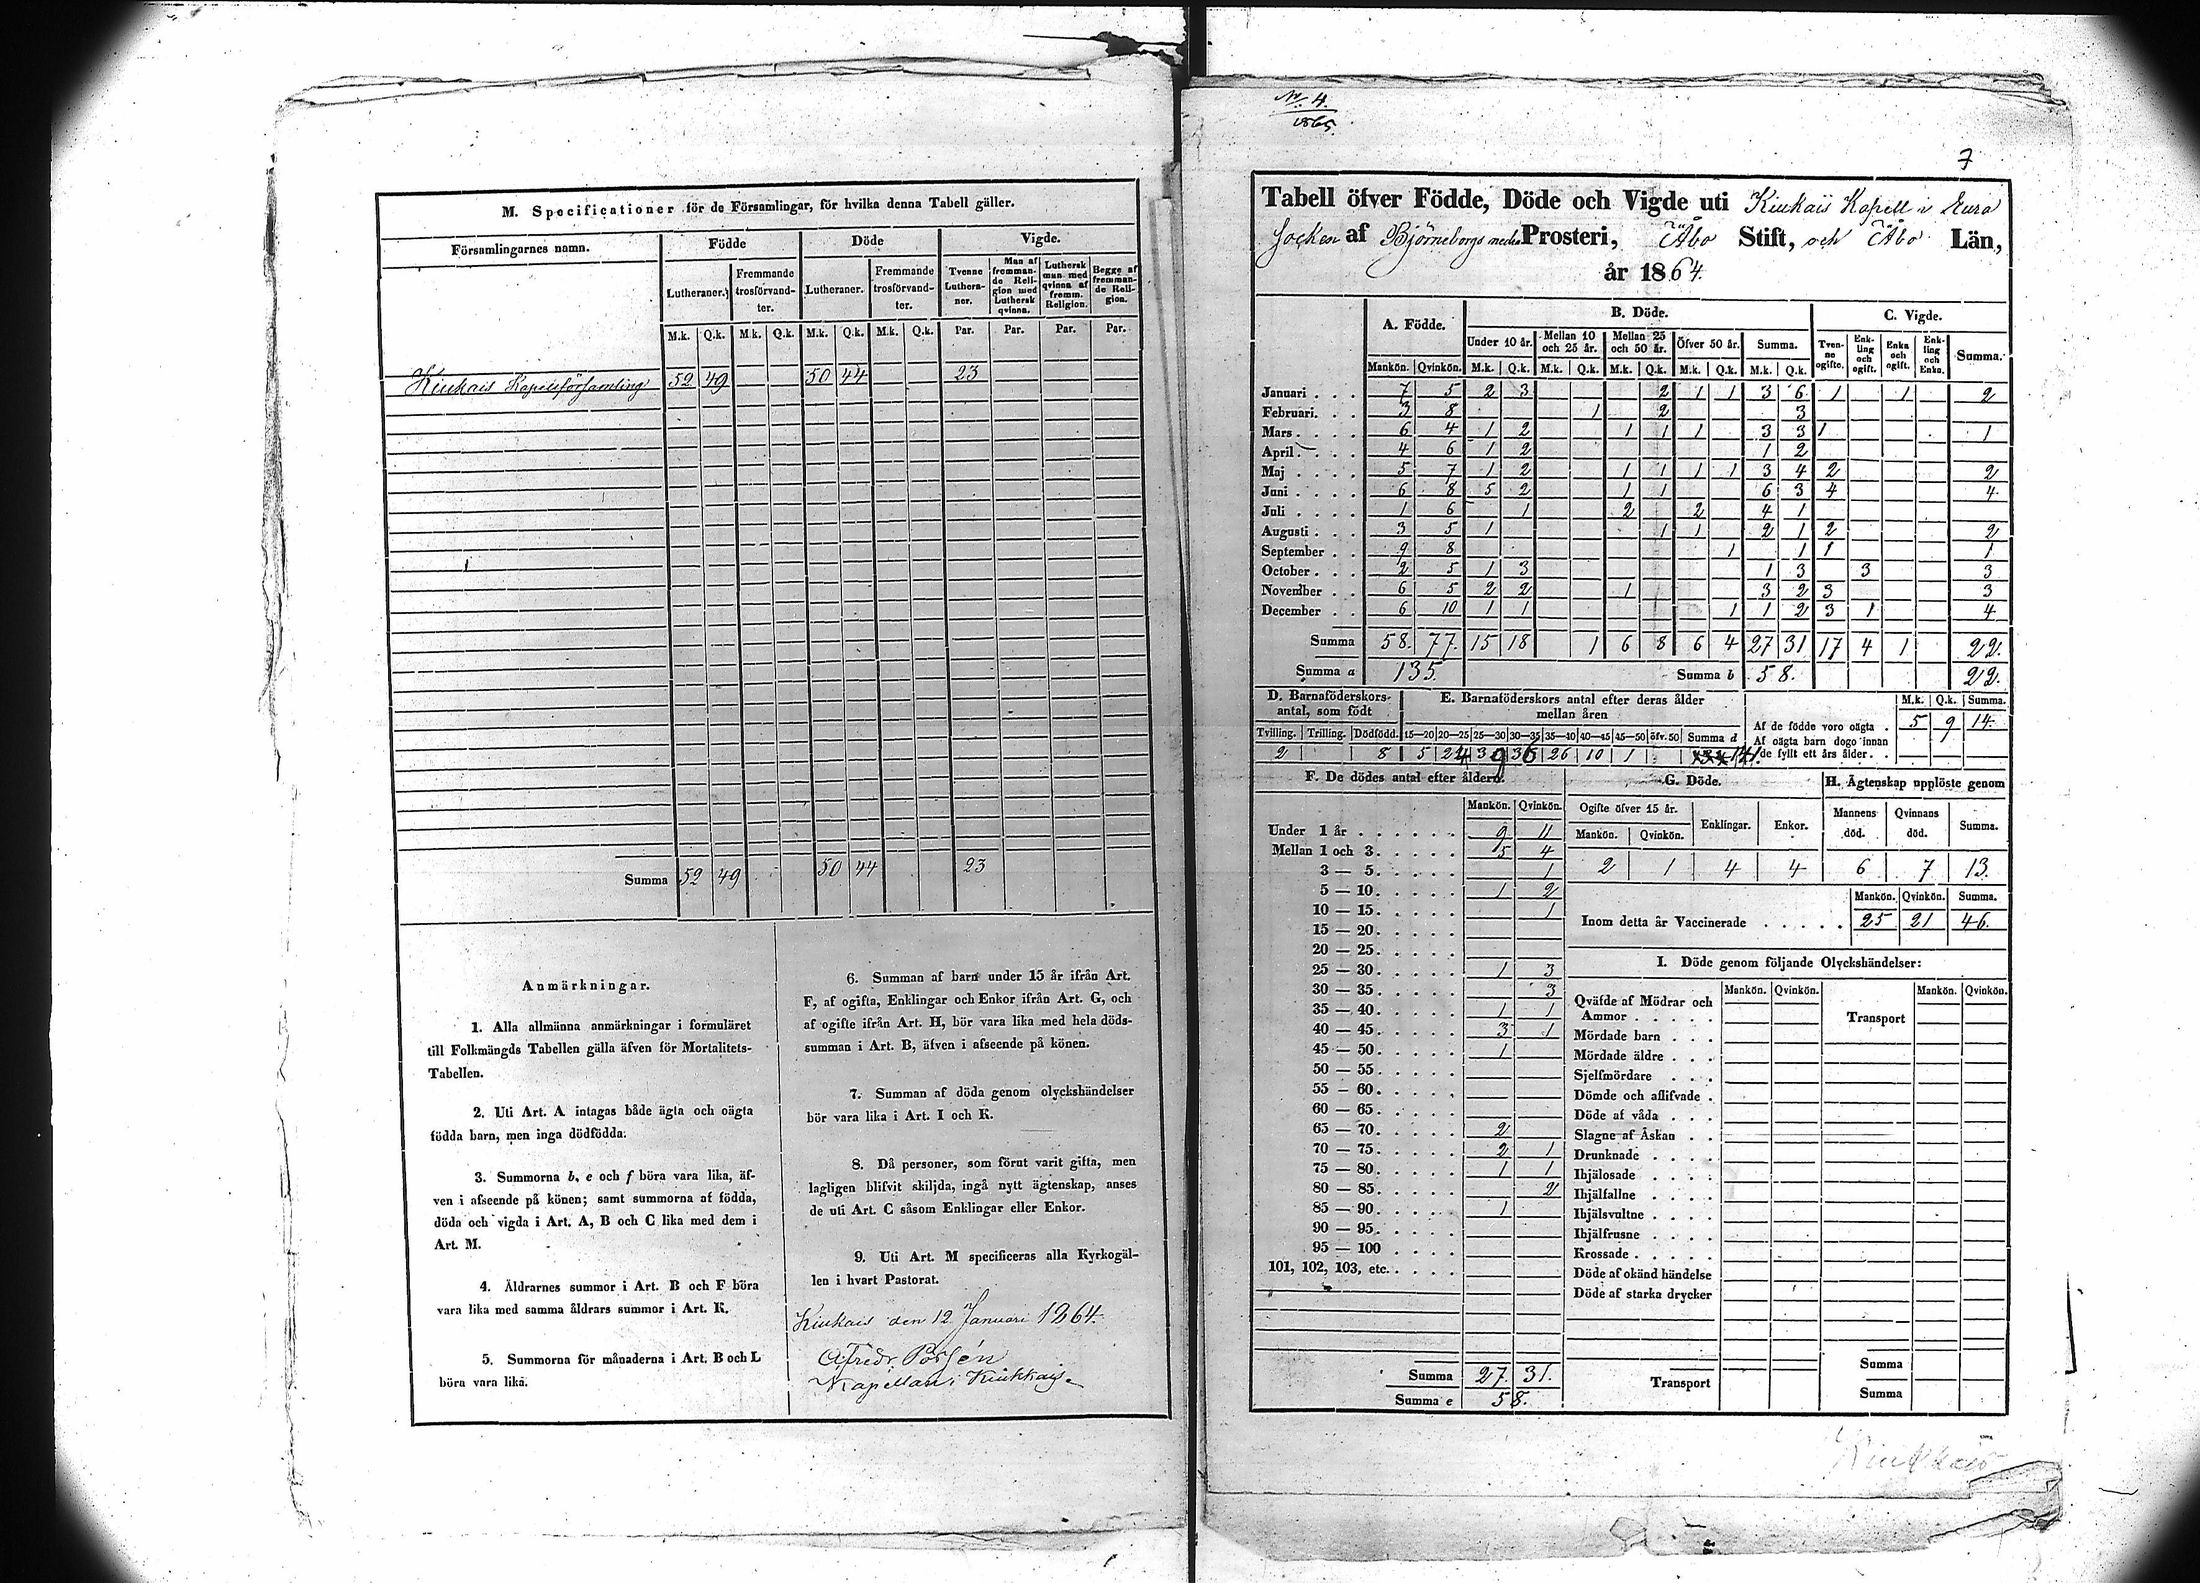 M. Specificationer för de Församlingar, för hvilka denna Tabell gäller.
Församlingarnes namn. Födde Döde Vigde.
Lutheraner. Fremmande trosförvandter. Lutheraner. Fremmande trosförvandter. Tvenne Lutheraner. Man af fremmande Religion med Luthersk qvinna. Luthersk man med qvinna af fremm. Religion. Begge af fremmande Religion.
M.k. Q.k. M.k. Q.k. M.k. Q.k. M.k. Q.k. Par. Par. Par. Par.
Kiukais Kapellförsamling 52 49 50 44 23
Summa 52 49 50 44 23
Anmärkningar.
1. Alla allmänna anmärkningar i formuläret
till Folkmängds Tabellen gälla äfven för Mortalitets-
Tabellen.
2. Uti Art. A intagas både ägta och oägta
födda barn, men inga dödfödda.
3. Summorna b, e och f böra vara lika, äf-
ven i afseende på könen; samt summorna af födda,
döda och vigda i Art. A, B och C lika med dem i
Art. M.
4. Äldrarnes summor i Art. B och F böra
vara lika med samma åldrars summor i Art. K.
5. Summorna för månaderna i Art. B och L
böra vara lika.
6. Summan af barn under 15 år ifrån Art.
F, af ogifta, Enklingar och Enkor ifrån Art. G, och
af ogifte ifrån Art. H, bör vara lika med hela döds-
summan i Art. B, äfven i afseende på könen.
7. Summan af döda genom olyckshändelser
bör vara lika i Art. I och K.
8. Då personer, som förut varit gifta, men
lagligen blifvit skiljda, ingå nytt ägtenskap, anses
de uti Art. C såsom Enklingar eller Enkor.
9. Uti Art. M specificeras alla Kyrkogäl-
len i hvart Pastorat.
Kiukais den 12 Januari 1864.
Alfredr. Porsén
Kapellan i Kiukkais.
No 4.
1865.
7
Tabell öfver Födde, Döde och Vigde uti Kiukais Kapell i Eura
Socken af Björneborgs nedra Prosteri, Åbo Stift, och Åbo Län,
år 1864.
A. Födde. B. Döde. C. Vigde.
Under 10 år. Mellan 10 och 25 år. Mellan 25 och 50 år. Öfver 50 år. Summa. Tvenne ogifte. Enkling och ogift. Enka och ogift. Enkling och Enka. Summa.
Mankön. Qvinkön. M.k. Q.k. M.k. Q.k. M.k. Q.k. M.k. Q.k. M.k. Q.k.
Januari . . . 7 5 2 3 2 1 1 3 6 1 1 2
Februari. . . 3 8 1 2 3
Mars . . . . 6 4 1 2 1 1 1 3 3 1 1
April . . . . 4 6 1 2 1 2
Maj . . . . 5 7 1 2 1 1 1 1 3 4 2 2
Juni . . . . 6 8 5 2 1 1 6 3 4 4
Juli . . . . 1 6 1 2 2 4 1
Augusti . . . 3 5 1 1 1 2 1 2 2
September . . 9 8 1 1 1 1
October . . . 2 5 1 3 1 3 3 3
November . . 6 5 2 2 1 3 2 3 3
December . . 6 10 1 1 1 1 2 3 1 4
Summa 58. 77. 15 18 1 6 8 6 4 27 31 17 4 1 22.
Summa a 135. Summa b 58. 22.
D. Barnaföderskors antal, som födt E. Barnaföderskors antal efter deras ålder mellan åren M.k. Q.k. Summa.
Tvilling. Trilling. Dödfödd. 15—20 20—25 25—30 30—35 35—40 40—45 45—50 öfv. 50 Summa d
Af de födde voro oägta . 5 9 14.
Af oägta barn dogo innan de fyllt ett års ålder . .
2 8 5 24 39 36 26 10 1 141.
F. De dödes antal efter åldern.
Mankön. Qvinkön.
Under 1 år . . . . . . 9 11
Mellan 1 och 3. . . . . 5 4
3 — 5. . . . . 1
5 — 10. . . . . 1 2
10 — 15. . . . . 1
15 — 20. . . . .
20 — 25. . . . .
25 — 30. . . . . 1 3
30 — 35. . . . . 3
35 — 40. . . . . 1 1
40 — 45. . . . . 3 1
45 — 50. . . . . 1
50 — 55. . . . .
55 — 60. . . . .
60 — 65. . . . .
65 — 70. . . . . 2
70 — 75. . . . . 2 1
75 — 80. . . . . 1 1
80 — 85. . . . . 2
85 — 90. . . . . 1
90 — 95. . . . .
95 — 100 . . . .
101, 102, 103, etc. . . . .
Summa 27. 31.
Summa e 58.
G. Döde. H. Ägtenskap upplöste genom
Ogifte öfver 15 år. Enklingar. Enkor. Mannens död. Qvinnans död. Summa.
Mankön. Qvinkön.
2 1 4 4 6 7 13.
Mankön. Qvinkön. Summa.
Inom detta år Vaccinerade . . . . . 25 21 46.
I. Döde genom följande Olyckshändelser:
Mankön. Qvinkön. Mankön. Qvinkön.
Qväfde af Mödrar och
Ammor . . . . . Transport
Mördade barn . . .
Mördade äldre . . .
Sjelfmördare . . .
Dömde och aflifvade .
Döde af våda . . .
Slagne af Åskan . .
Drunknade . . . .
Ihjälosade . . . .
Ihjälfallne . . . .
Ihjälsvultne . . . .
Ihjälfrusne . . . .
Krossade . . . . .
Döde af okänd händelse
Döde af starka drycker
Transport Summa
Summa
Kiukkais